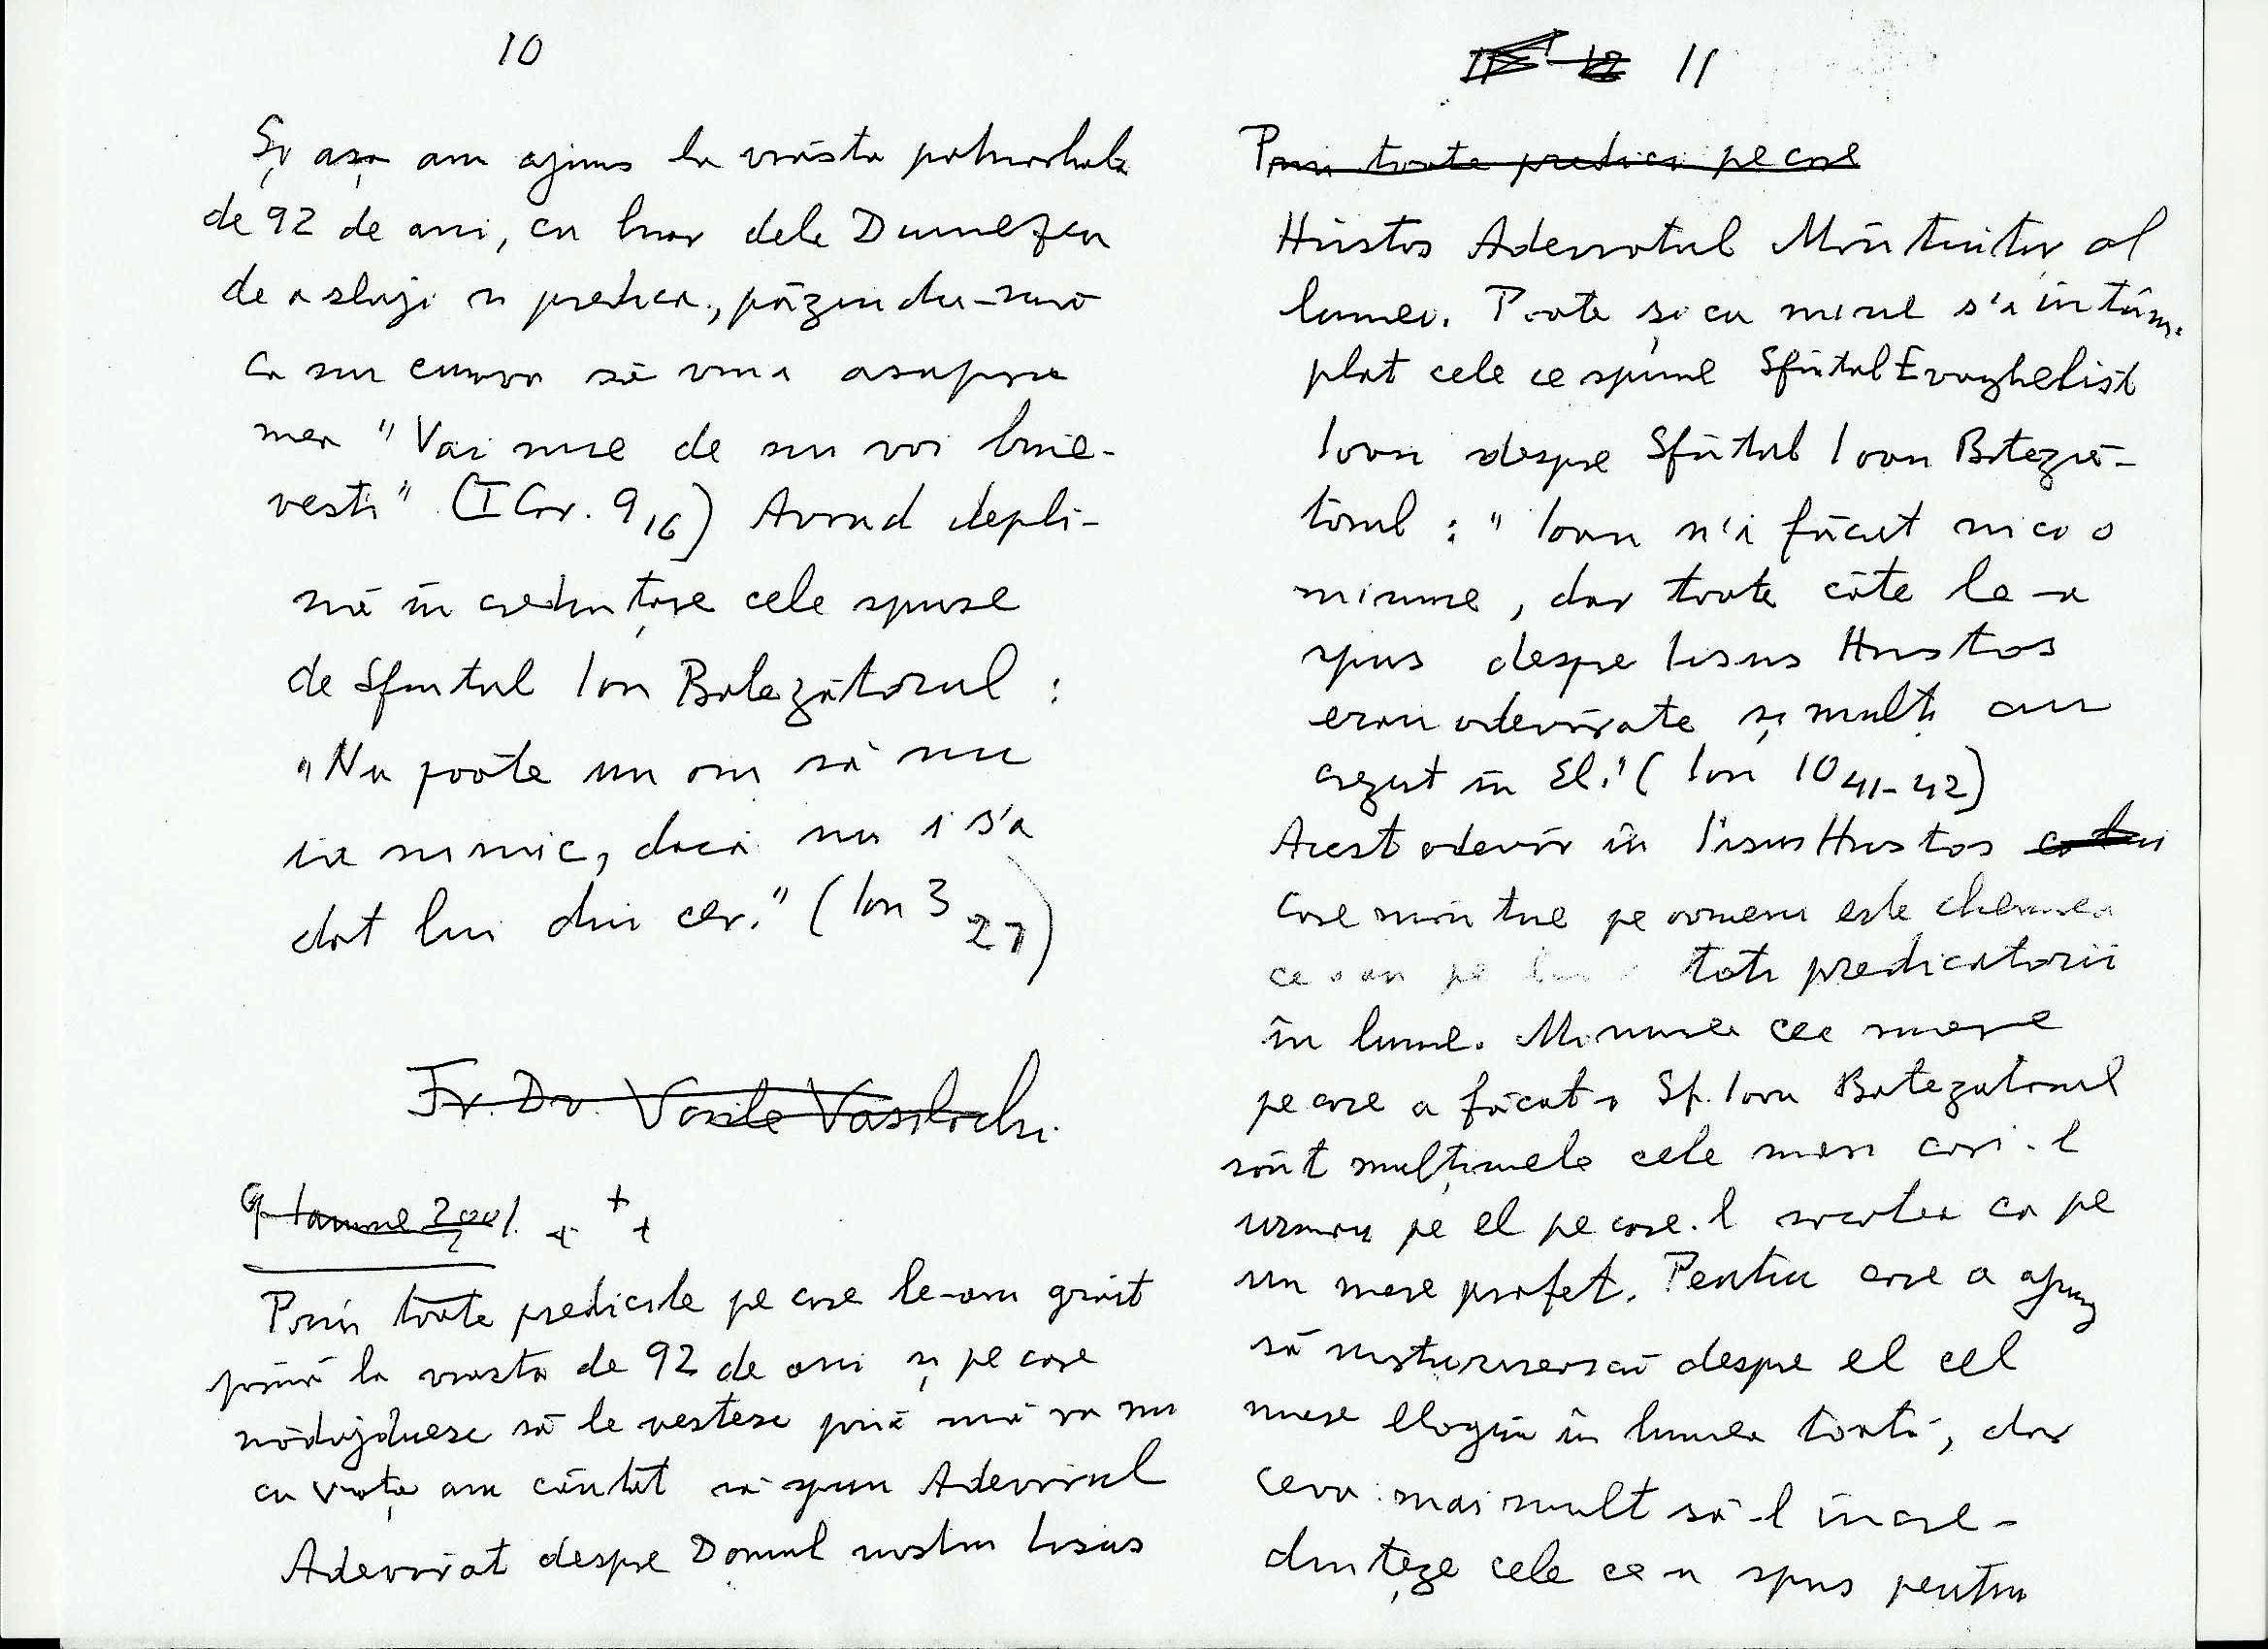 10
Și așa am ajuns la vrâsta patriarhala
de 92 de ani, cu har dela Dumnezeu
de a sluji si predica, păzindu-mă
ca nu cumva să vina asupra
mea "Vai mie de nu voi bine-
vesti" (I Cor. 9 16) Avand depli-
nă încredințare cele spuse
de Sfintul Ion Botezătorul :
"Nu poate un om să nu
ia nimic, daca nu i s'a
dat lui din cer." (Ion 3 27)
Fr. Dr. Vasile Vasilachi
9 Ianuarie 2001.
Prin toate predicile pe care le-am grait
până la vrasta de 92 de ani și pe care
nădăjduesc să le vestesc până mă va
cu viața am căutat să spun Adevărul
Adevărat despre Domnul nostru Iisus
11
Prin toate predici pe care
Hristos Adevaratul Mântuitor al
lumei. Poate și cu mine s'a întâm-
plat cele ce spune Sfântul Evaghelist
Ioan despre Sfântul Ioan Boteză-
torul : "Ioan n'a făcut nici o
minune, dar toate câte le-a
spus despre Iisus Hristos
erau adevărate și mulți au
crezut în El." (Ion 10 41-42)
Acest adevăr în Iisus Hristos
care mântue pe oameni este chemarea
ce o au pe toti predicatorii
în lume. Minunea cea mare
pe care a făcut-o Sf. Ioan Botezatorul
sânt mulțimele cele mari cari-l
urmau pe el pe care-l socotea ca pe
un mare profet. Pentru care a ajuns
să mărturisească despre el cel
mare elogiu în lumea toată, dar
ceva mai mult să-l incre-
dințeze cele ce a spus pentru